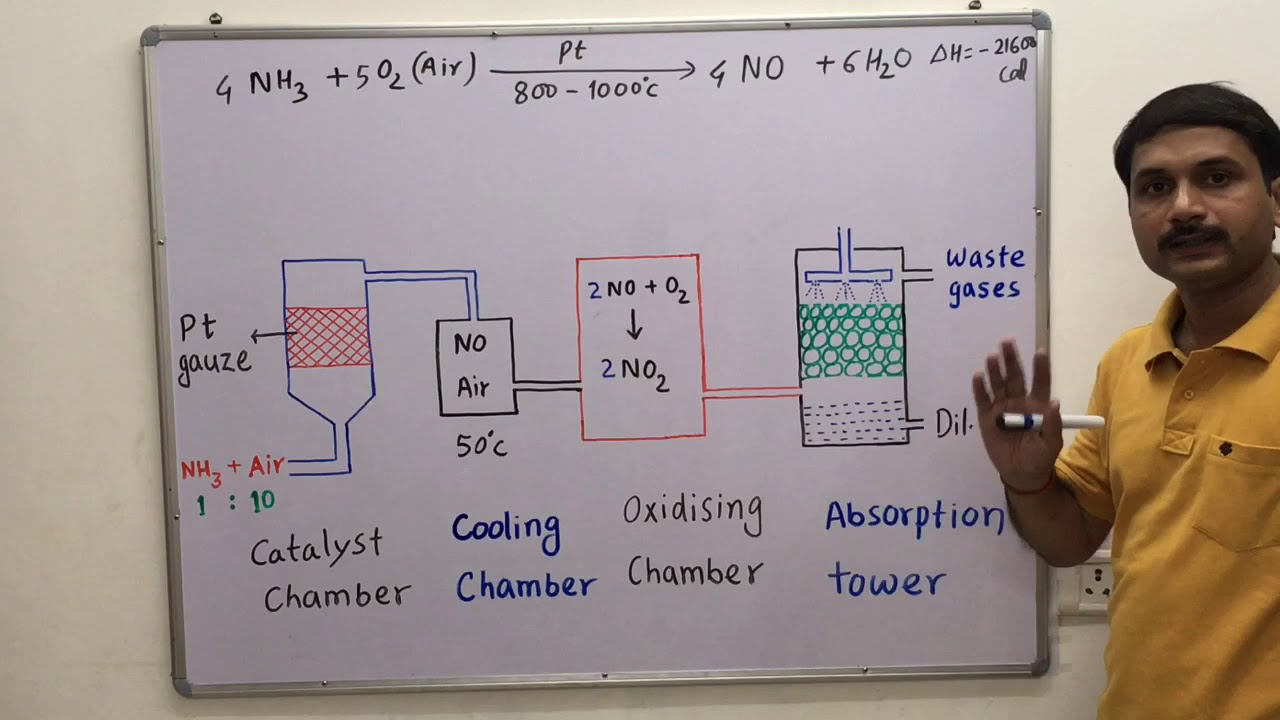 4 NH₃ + 5O₂ (Air) Pt 800 – 1000°C → 4 NO + 6H₂O ΔH = – 21600 Cal
Pt
gauze
NH₃ + Air
1 : 10
NO
Air
50°C
2NO + O₂
↓
2NO₂
Waste
gases
Dil.
Catalyst
Chamber
Cooling
Chamber
Oxidising
Chamber
Absorption
tower